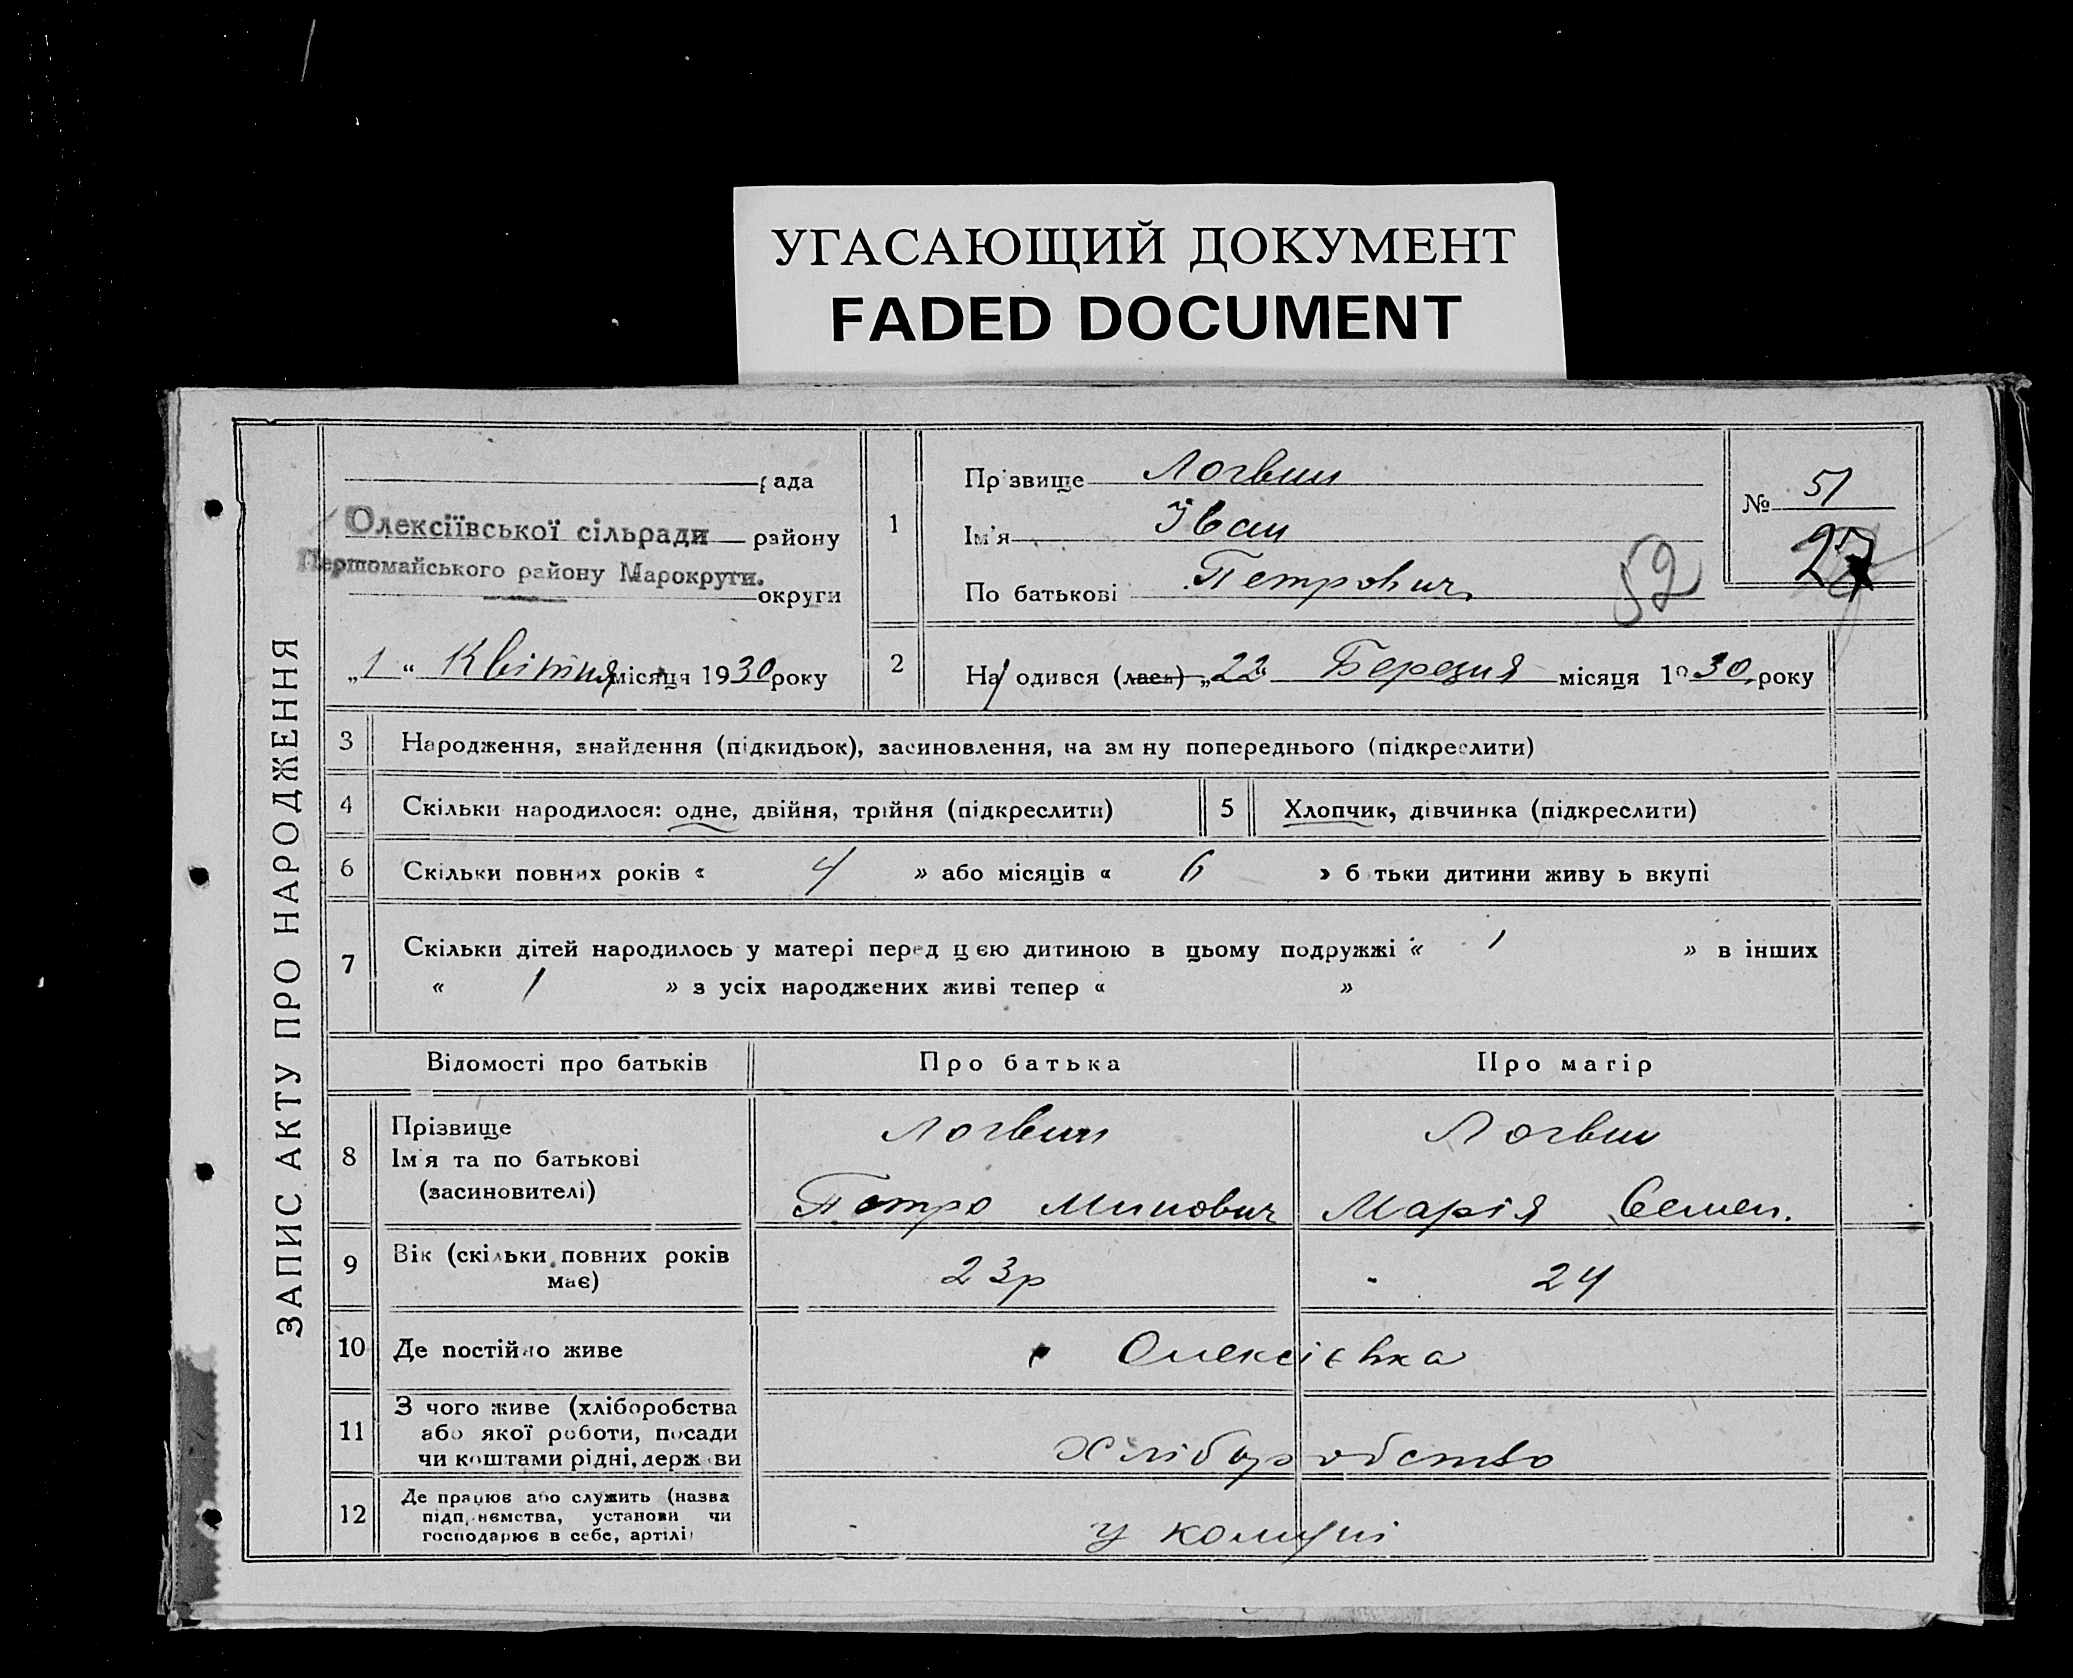 УГАСАЮЩИЙ ДОКУМЕНТ
FADED DOCUMENT
ЗАПИС АКТУ ПРО НАРОДЖЕННЯ
рада
Олексіївської сільради району
Первомайського району Марокруги.
округи
„1“ Квітня місяця 1930 року
1
Прізвище Логвин
Ім'я Іван
По батькові Петрович
52
№ 51
27
2
На одився (лася) „22“ Березня місяця 1930 року
3 Народження, знайдення (підкидьок), засиновлення, на зм ну попереднього (підкреслити)
4 Скільки народилося: одне, двійня, трійня (підкреслити)
5 Хлопчик, дівчинка (підкреслити)
6 Скільки повних років « 4 » або місяців « 6 » б тьки дитини живу ь вкупі
7 Скільки дітей народилось у матері перед цією дитиною в цьому подружжі « 1 » в інших
« 1 » з усіх народжених живі тепер « »
Відомості про батьків Про батька Про матір
8 Прізвище Логвин Логвин
Ім'я та по батькові
(засиновителі) Петро Минович Марія Семен.
9 Вік (скільки повних років має) 23р 24
10 Де постійно живе Олексієвка
11 З чого живе (хліборобства
або якої роботи, посади
чи коштами рідні, держ ви Хліборобство
12 Де працює або служить (назва
підп иємства, установи чи
господарює в себе, артілі) у комуні